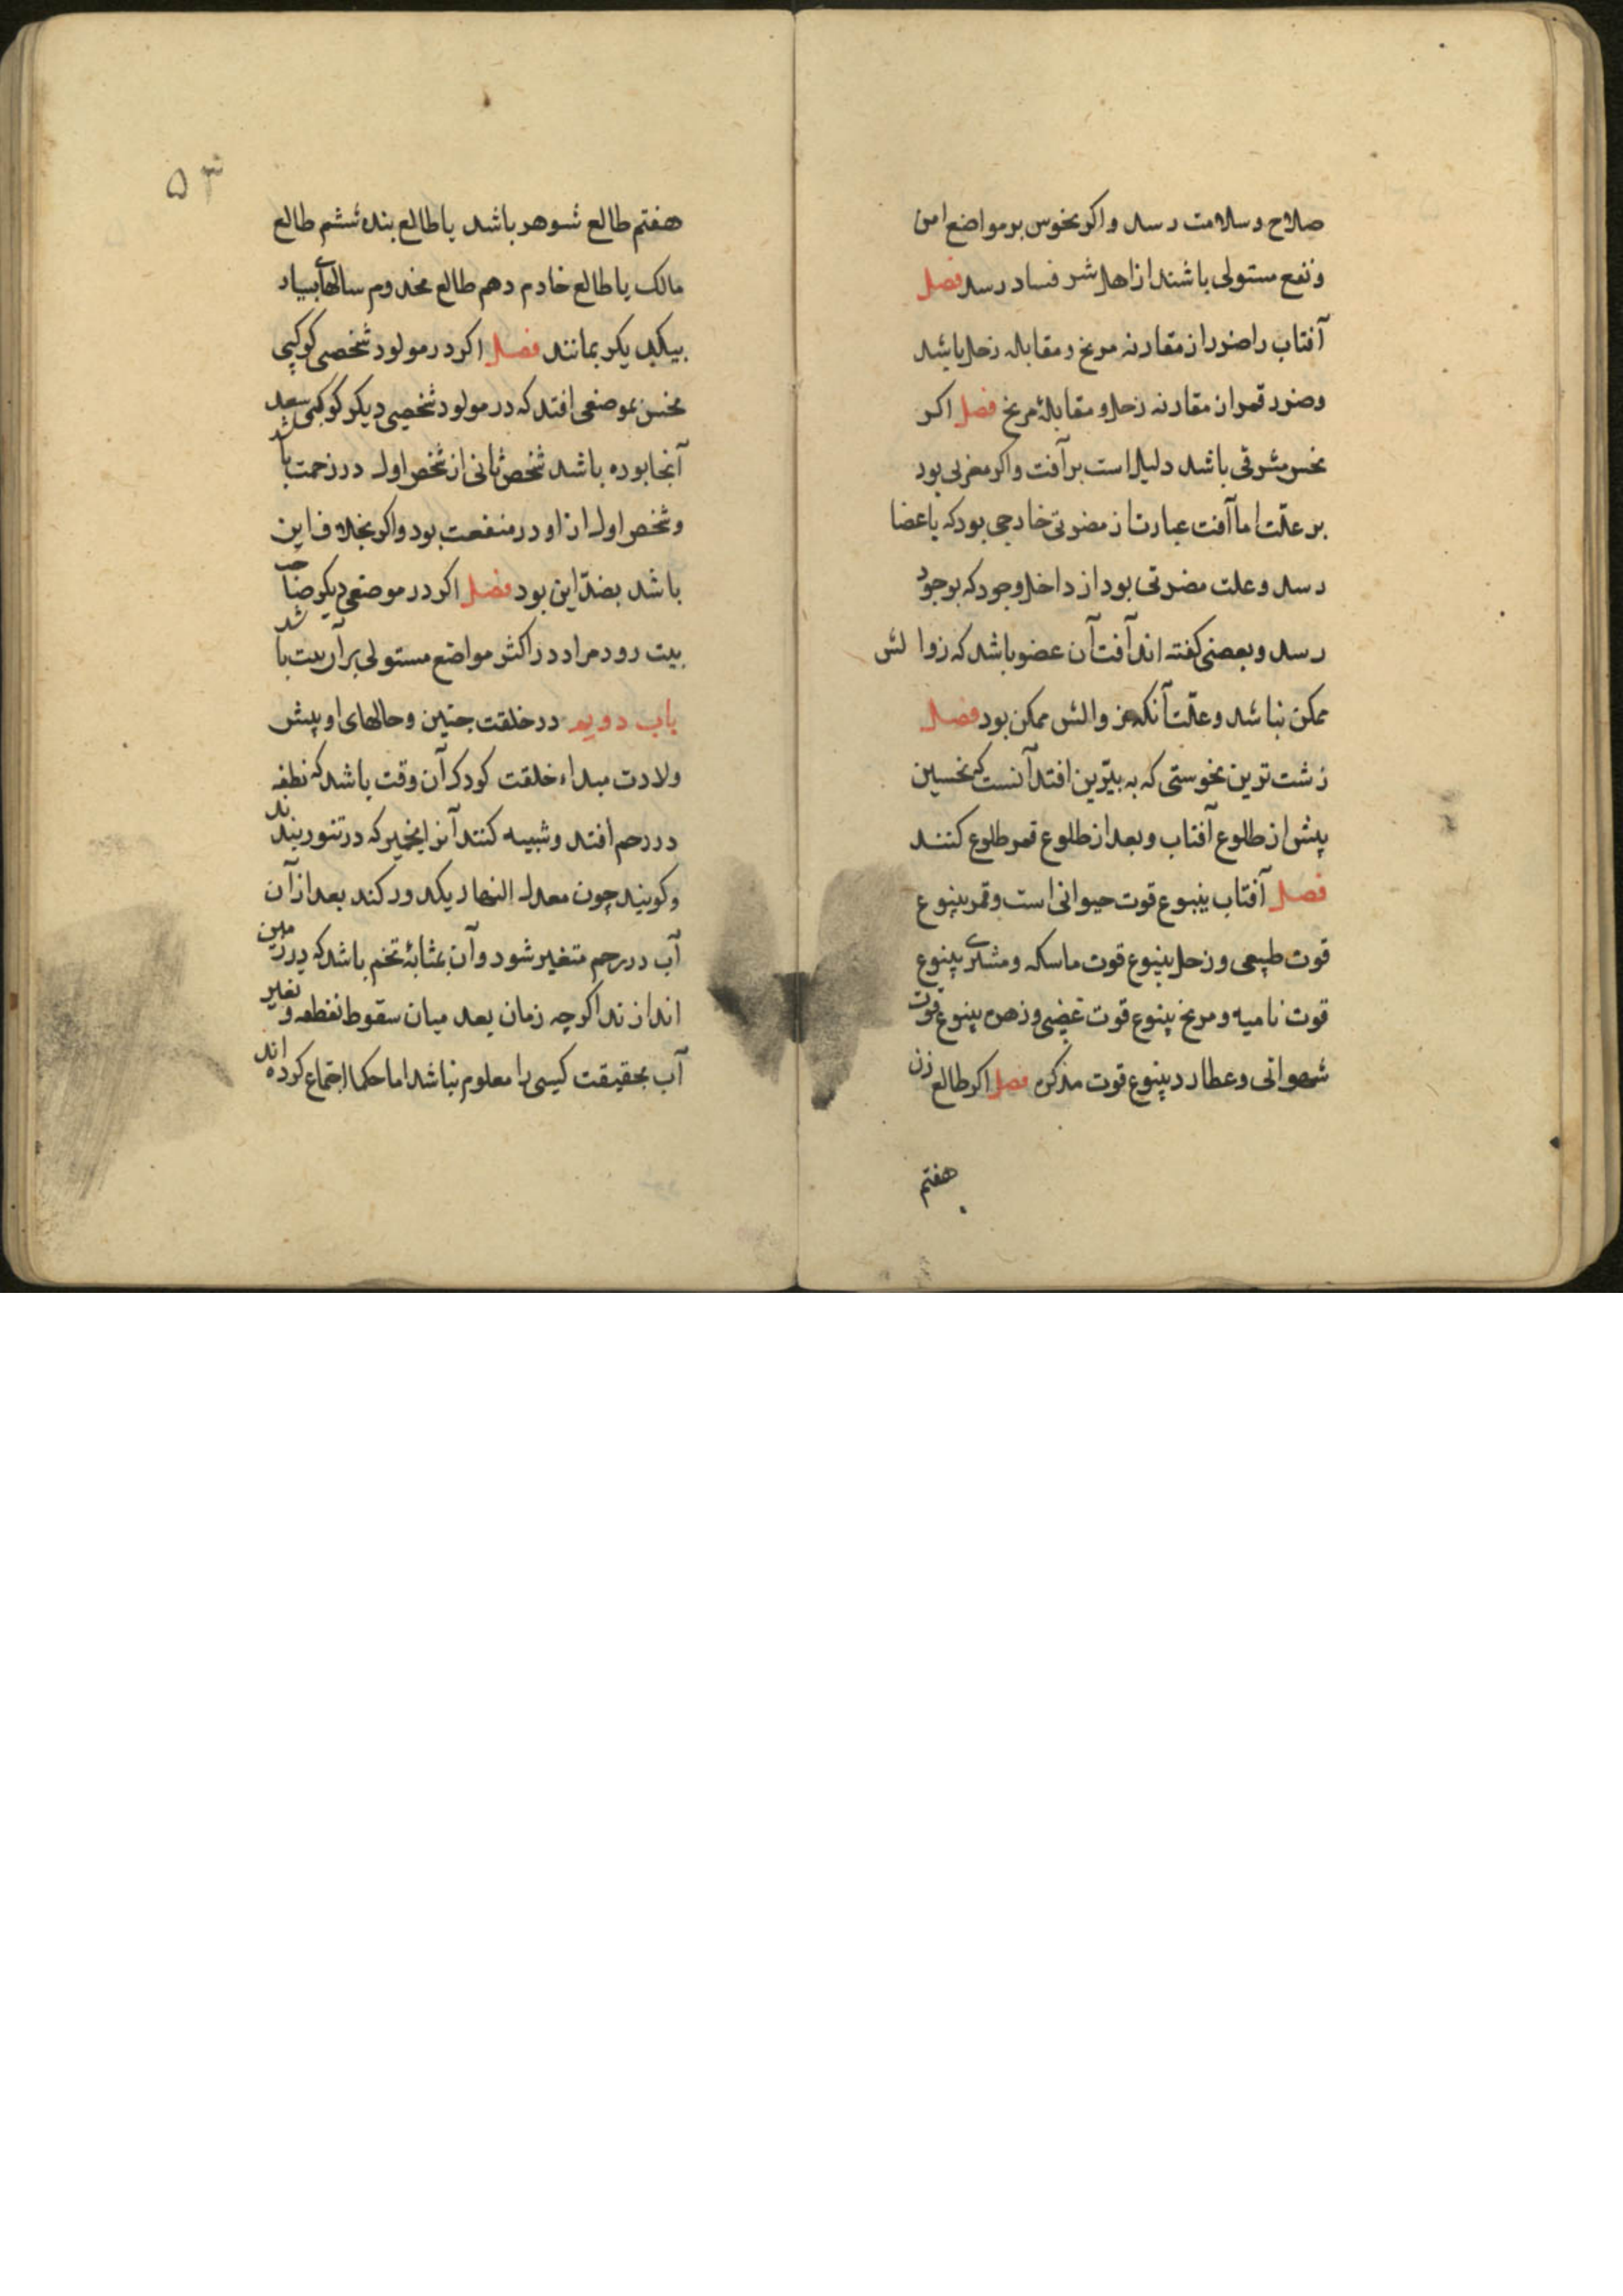 صلاح و سلامت رسد و اکر نحوس بر مواضع امن
و نفع مستولی باشند از اهل شر فساد رسد فصل
آفتاب را ضرر از مقارنه مریخ و مقابله زحل باشد
و ضرر قمر از مقارنه زحل و مقابلهٔ مریخ فصل اکر
نحس مشرقی باشد دلیل است بر آفت و اکر مغربی بود
بر علّت اما آفت عبارت از مضرتی خارجی بود که باعضا
رسد و علت مضرتی بود از داخل وجود که بوجود
رسد و بعضی کفته اند آفت آن عضو باشد که زوالش
ممکن نباشد و علّت آنکه زوالش ممکن بود فصل
زشت ترین نحوستی که به نیّرین افتد آنست که نحسین
پیش از طلوع آفتاب و بعد از طلوع قمر طلوع کنند
فصل آفتاب ینبوع قوت حیوانی است و قمر ینبوع
قوت طبیعی و زحل ینبوع قوت ماسکه و مشتری ینبوع
قوت نامیه و مریخ ینبوع قوت غضبی و زهره ینبوع قوت
شهوانی و عطارد ینبوع قوت مذکره فصل اکر طالع زن
هفتم
۵۳
هفتم طالع شوهر باشد یا طالع بنده ششم طالع
مالک یا طالع خادم دهم طالع مخدوم سالهای بسیار
بیکدیکر بمانند فصل اکر در مولود شخصی کوکبی
نحس بموضعی افتد که در مولود شخصی دیکر کوکبی سعد
آنجا بوده باشد شخص ثانی از شخص اول در زحمت باشد
و شخص اول از او در منفعت بود و اکر بخلاف این
باشد بضدّ این بود فصل اکر در موضعی دیکر صاحب
بیت رود مراد در اکثر مواضع مستولی بر آن بیت باشد
باب دویم در خلقت جنین و حالهای او پیش
ولادت مبداء خلقت کودک آن وقت باشد که نطفه
در رحم افتد و شبیه کنند آنرا بخمیر که در تنور بندند
و کویند چون معدل النهار یکدور کند بعد از آن
آب در رحم متغیر شود و آن بمثابهٔ تخم باشد که در زمین
اندازند اکرچه زمان بعد میان سقوط نطفه و تغیر
آب بحقیقت کسی را معلوم نباشد اما حکما اجتماع کرده اند